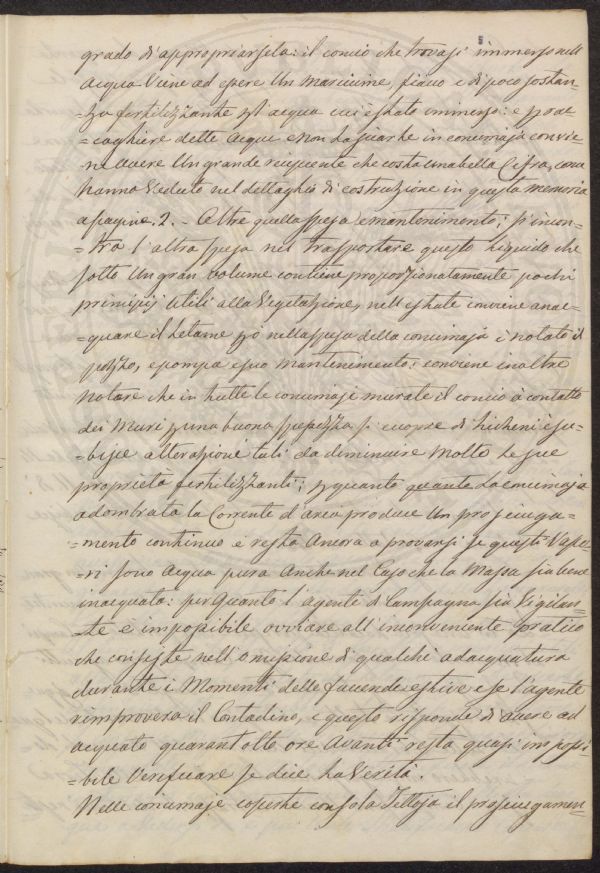 grado di appropriarsela: il concio che trovasi immerso nell
acqua viene ad essere un marciume, fiacco e di poca sostan-
-za fertilizzante p. l'acqua cui è stato immerso: e p. rac-
-cogliere dette acque e non lasciarle in concimaja convie-
ne avere un grande recipiente che costa una bella cifra, come
hanno veduto nel dettaglio di costruzione in questa memoria
a pagine. 2. - Oltre quella spesa e mantenimento; s'incon-
-tra l'altra spesa nel trasportare questo liquido che
sotto un gran volume contiene proporzionalmente pochi
principij utili alla vegetazione, nell'estate conviene anac-
-quare il letame p. ciò nella spesa della concimaja è notato il
pozzo, e pompa e suo mantenimento: conviene inoltre
notare che in tutte le concimaje murate il concio a contatto
dei muri p. una buona spessezza si cuopre di licheni e su-
-bisce alterazioni tali da diminuire molto le sue
proprietà fertilizzanti; p. quanto quante la concimaja
adombrata la corrente d'area produce un prosciuga-
-mento continuo e resta ancora a provarsi se questi vapo-
-ri sono acqua pura anche nel caso che la massa sia bene
inacquata: per quanto l'agente di campagna sia vigilan-
-te è impossibile ovviare all'inconveniente pratico
che consiste nell'omissione di qualche adacquatura
durante i momenti delle faccende estive e se l'agente
rimprovera il contadino, e questo risponde di avere ad
acquato quarantotto ore avanti resta quasi impossi-
-bile verificare se dice la verità.
Nelle concimaje coperte con sola tettoja il prosciugamen-